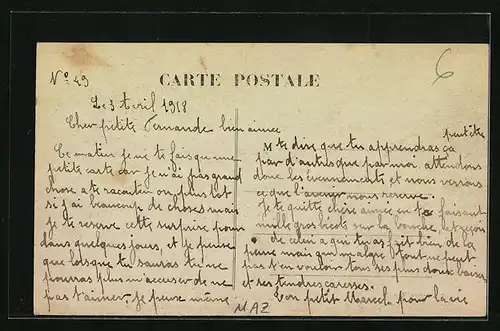 No 49
CARTE POSTALE
6
Le 3 Avril 1918
Cher petite Fernande bien aimée
Ce matin je ne te fais qu'une
petite carte car je n'ai pas grand
chose a te racontez ou plus tot
si j'ai beaucoup de choses mais
je te reserve cette surprise pour
dans quelques jours, et je pense
que lorsque tu sauras tu ne
pourras plus m'accuser de ne
pas t'aimer. Je peux même
peut être
te dire que tu apprendras ça
par d'autres que par moi attendons
donc les évenements et nous verrons
ce que l'avenir nous reserve.
Je te quitte chère aimée en te faisant
mille gros becots sur la bouche, et reçois
de celui a qui tu as fait bien de la
peine mais qui malgré tout ne peut
pas t'en vouloir tous ses plus doux baisers
et ses tendres caresses.
Ton petit Marcel pour la vie
MAZ